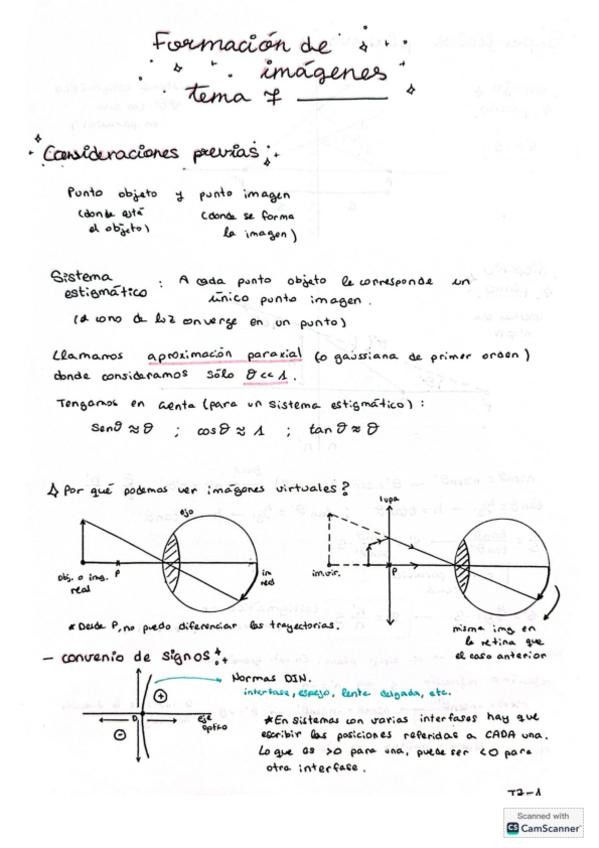 Formación de
imágenes
tema 7
Consideraciones previas:
Punto objeto y punto imagen
(donde está (donde se forma
el objeto) la imagen)
Sistema estigmático: A cada punto objeto le corresponde un
único punto imagen.
(el cono de luz converge en un punto)
Llamamos aproximación paraxial (o gaussiana de primer orden)
donde consideramos sólo θ<<1.
Tengamos en cuenta (para un sistema estigmático):
senθ≈θ ; cosθ≈1 ; tanθ≈θ
¿Por qué podemos ver imágenes virtuales?
ojo
lupa
obj. o img.
real
P
im
real
im.vir.
P
* Desde P, no puedo diferenciar las trayectorias.
misma img en
la retina que
el caso anterior
- convenio de signos:
Normas DIN.
interfase, espejo, lente delgada, etc.
+
O
eje
óptico
-
* En sistemas con varias interfases hay que
escribir las posiciones referidas a CADA una.
Lo que es >0 para una, puede ser <0 para
otra interfase.
T7-1
Scanned with
CS CamScanner